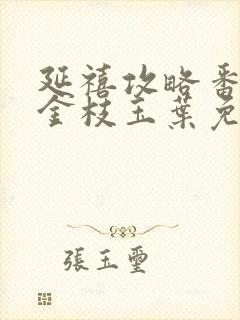 延禧攻略番
金枝玉葉免
張玉璽